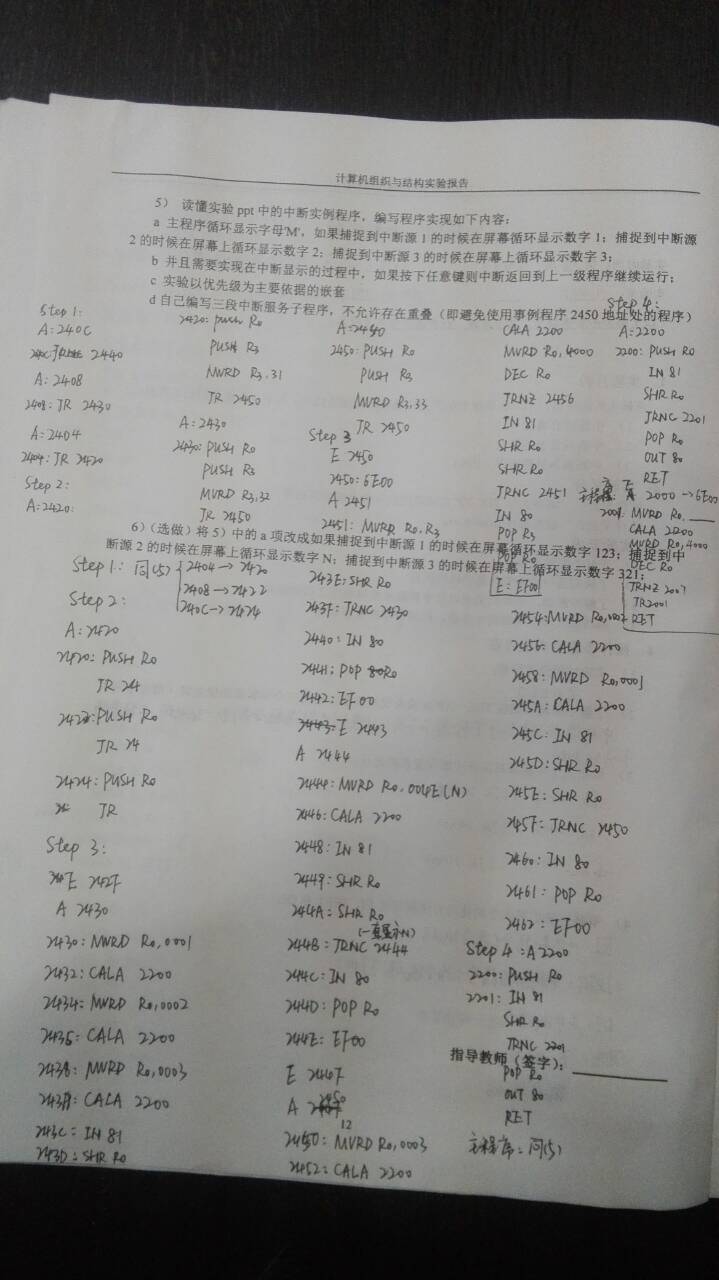 计算机组织与结构实验报告
5） 读懂实验 ppt 中的中断实例程序，编写程序实现如下内容：
a 主程序循环显示字母'M'，如果捕捉到中断源 1 的时候在屏幕循环显示数字 1；捕捉到中断源
2 的时候在屏幕上循环显示数字 2；捕捉到中断源 3 的时候在屏幕上循环显示数字 3；
b 并且需要实现在中断显示的过程中，如果按下任意键则中断返回到上一级程序继续运行；
c 实验以优先级为主要依据的嵌套
d 自己编写三段中断服务子程序，不允许存在重叠（即避免使用事例程序 2450 地址处的程序）
Step 1:
A: 240C
240C: JR 2440
A: 2408
2408: JR 2430
A: 2404
2404: JR 2420
Step 2:
A: 2420:
2420: PUSH R0
PUSH R3
MVRD R3,31
JR 2450
A: 2430
2430: PUSH R0
PUSH R3
MVRD R3,32
JR 2450
A: 2440
2450: PUSH R0
PUSH R3
MVRD R3,33
JR 2450
Step 3
E 2450
2450: 6E00
A 2451
2451: MVRR R0,R3
CALA 2200
MVRD R0,4000
DEC R0
JRNZ 2456
IN 81
SHR R0
SHR R0
JRNC 2451
IN 80
POP R3
POP R0
E: EF00
Step 4:
A: 2200
2200: PUSH R0
IN 81
SHR R0
JRNC 2201
POP R0
OUT 80
RET
主程序 E 2000 → 6E00
2001: MVRD R0,
CALA 2200
MVRD R0,4000
DEC R0
JRNZ 2007
JR2001
RET
6）（选做）将 5）中的 a 项改成如果捕捉到中断源 1 的时候在屏幕循环显示数字 123；捕捉到中
断源 2 的时候在屏幕上循环显示数字 N；捕捉到中断源 3 的时候在屏幕上循环显示数字 321；
Step 1: 同(5)
2404 → 2420
2408 → 2422
240C → 2424
Step 2:
A: 2420
2420: PUSH R0
JR 24
2422: PUSH R0
JR 24
2424: PUSH R0
JR
Step 3:
E 242F
A 2430
2430: MVRD R0,0001
2432: CALA 2200
2434: MVRD R0,0002
2436: CALA 2200
2438: MVRD R0,0003
243A: CALA 2200
243C: IN 81
243D: SHR R0
243E: SHR R0
243F: JRNC 2430
2440: IN 80
2441: POP R0
2442: EF00
E 2443
A 2444
2444: MVRD R0,004E(N)
2446: CALA 2200
2448: IN 81
2449: SHR R0
244A: SHR R0
(一直显示N)
244B: JRNC 2444
244C: IN 80
244D: POP R0
244E: EF00
E 244F
A 2450
2450: MVRD R0,0003
2452: CALA 2200
2454: MVRD R0,0002
2456: CALA 2200
2458: MVRD R0,0001
245A: CALA 2200
245C: IN 81
245D: SHR R0
245E: SHR R0
245F: JRNC 2450
2460: IN 80
2461: POP R0
2462: EF00
Step 4: A 2200
2200: PUSH R0
2201: IN 81
SHR R0
JRNC 2201
POP R0
OUT 80
RET
主程序：同(5)
指导教师（签字）：
12